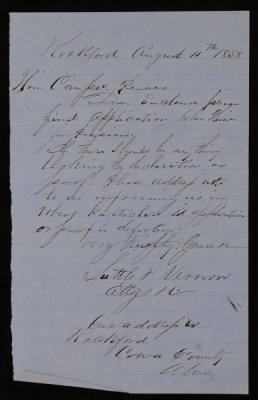 Rockford August 11th 1858
Hon. Com of Pensions
Dear Sir enclosed please
find application
for Pension
If there should be any thing
lacking in declaration or
proof. Please address note
to us informing us in
what particular is application
or proof is defective
Very Respty. Yours &c
Suttle & Vernon
Attys &c
Our address is
Rockford
Coosa County
Ala